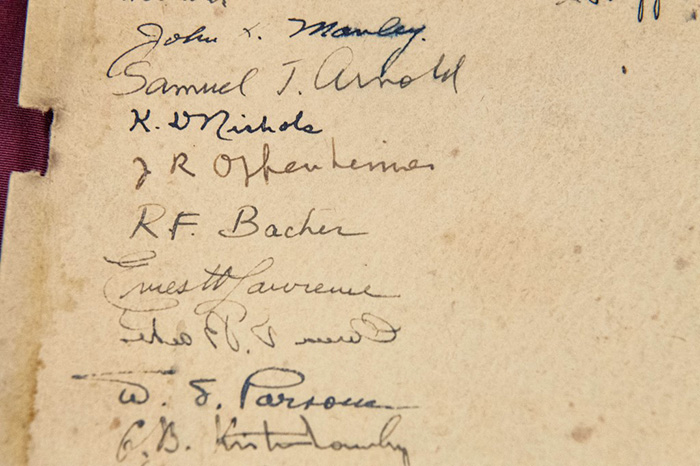 John H. Manley.
Samuel T. Arnold
K. D Nichols
J R Oppenheimer
R. F. Bacher
Ernest O Lawrence
W. S. Parsons
G. B. Kistiakowsky